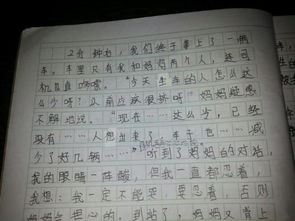 2分钟右，我们终于拿上了一辆
车。车里只有我和妈妈两个人，连司
机自
"今天坐车的人怎么这
么少呀？以前应该很挤呀"妈妈疑惑
不解地说。"现在……这么了，已经
没有……人怎出来了，车子也……减
少了好几辆……"听到了妈妈的对话，
我的眼睛一阵酸，但我一直都忍着，
我想：我一定不能哭，要忍着，否则
妈妈
担心的，到站了，妈妈
背上